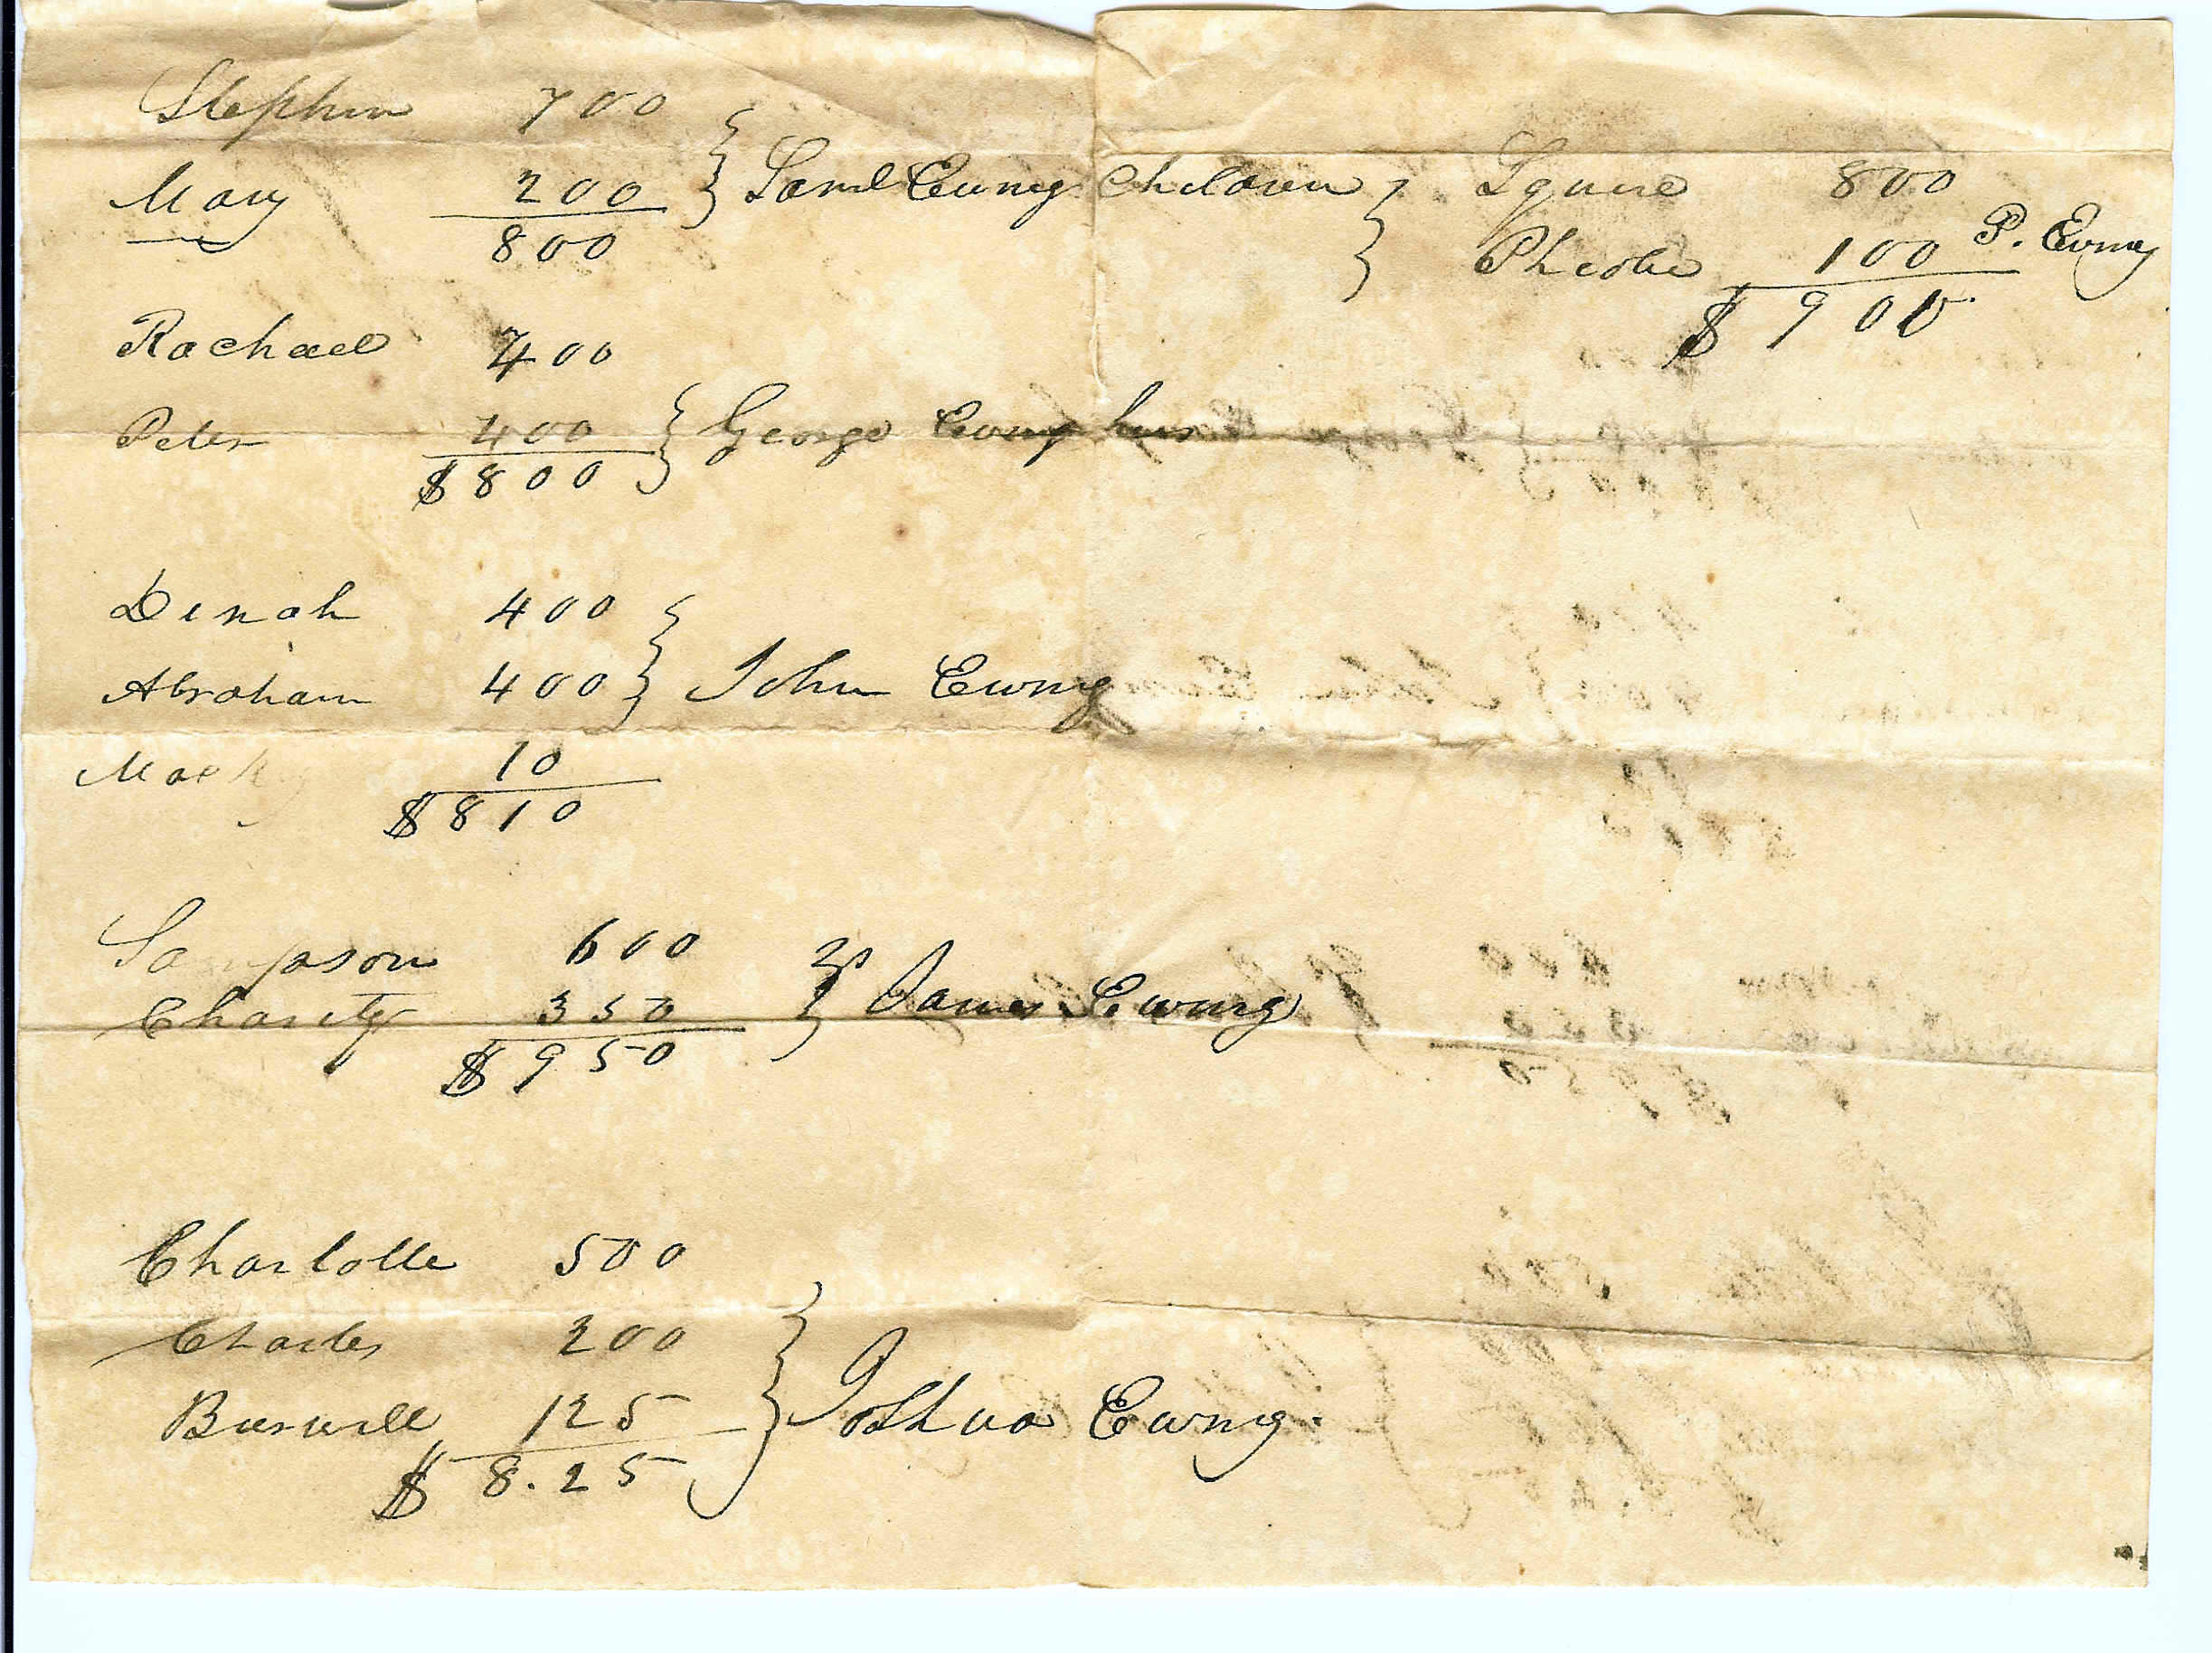 Stephen 700
Mary 200 } Saml Ewing Children
800
Squire 800
Phebe 100 P. Ewing
$ 900
Rachael 400
Peter 400 } George Ewing heirs
$800
Dinah 400
Abraham 400 } John Ewing
10
$810
Sampson 600
Charity 350 } James Ewing
$950
Charlotte 500
Charles 200
Burwell 125 } Joshua Ewing.
$ 8.25